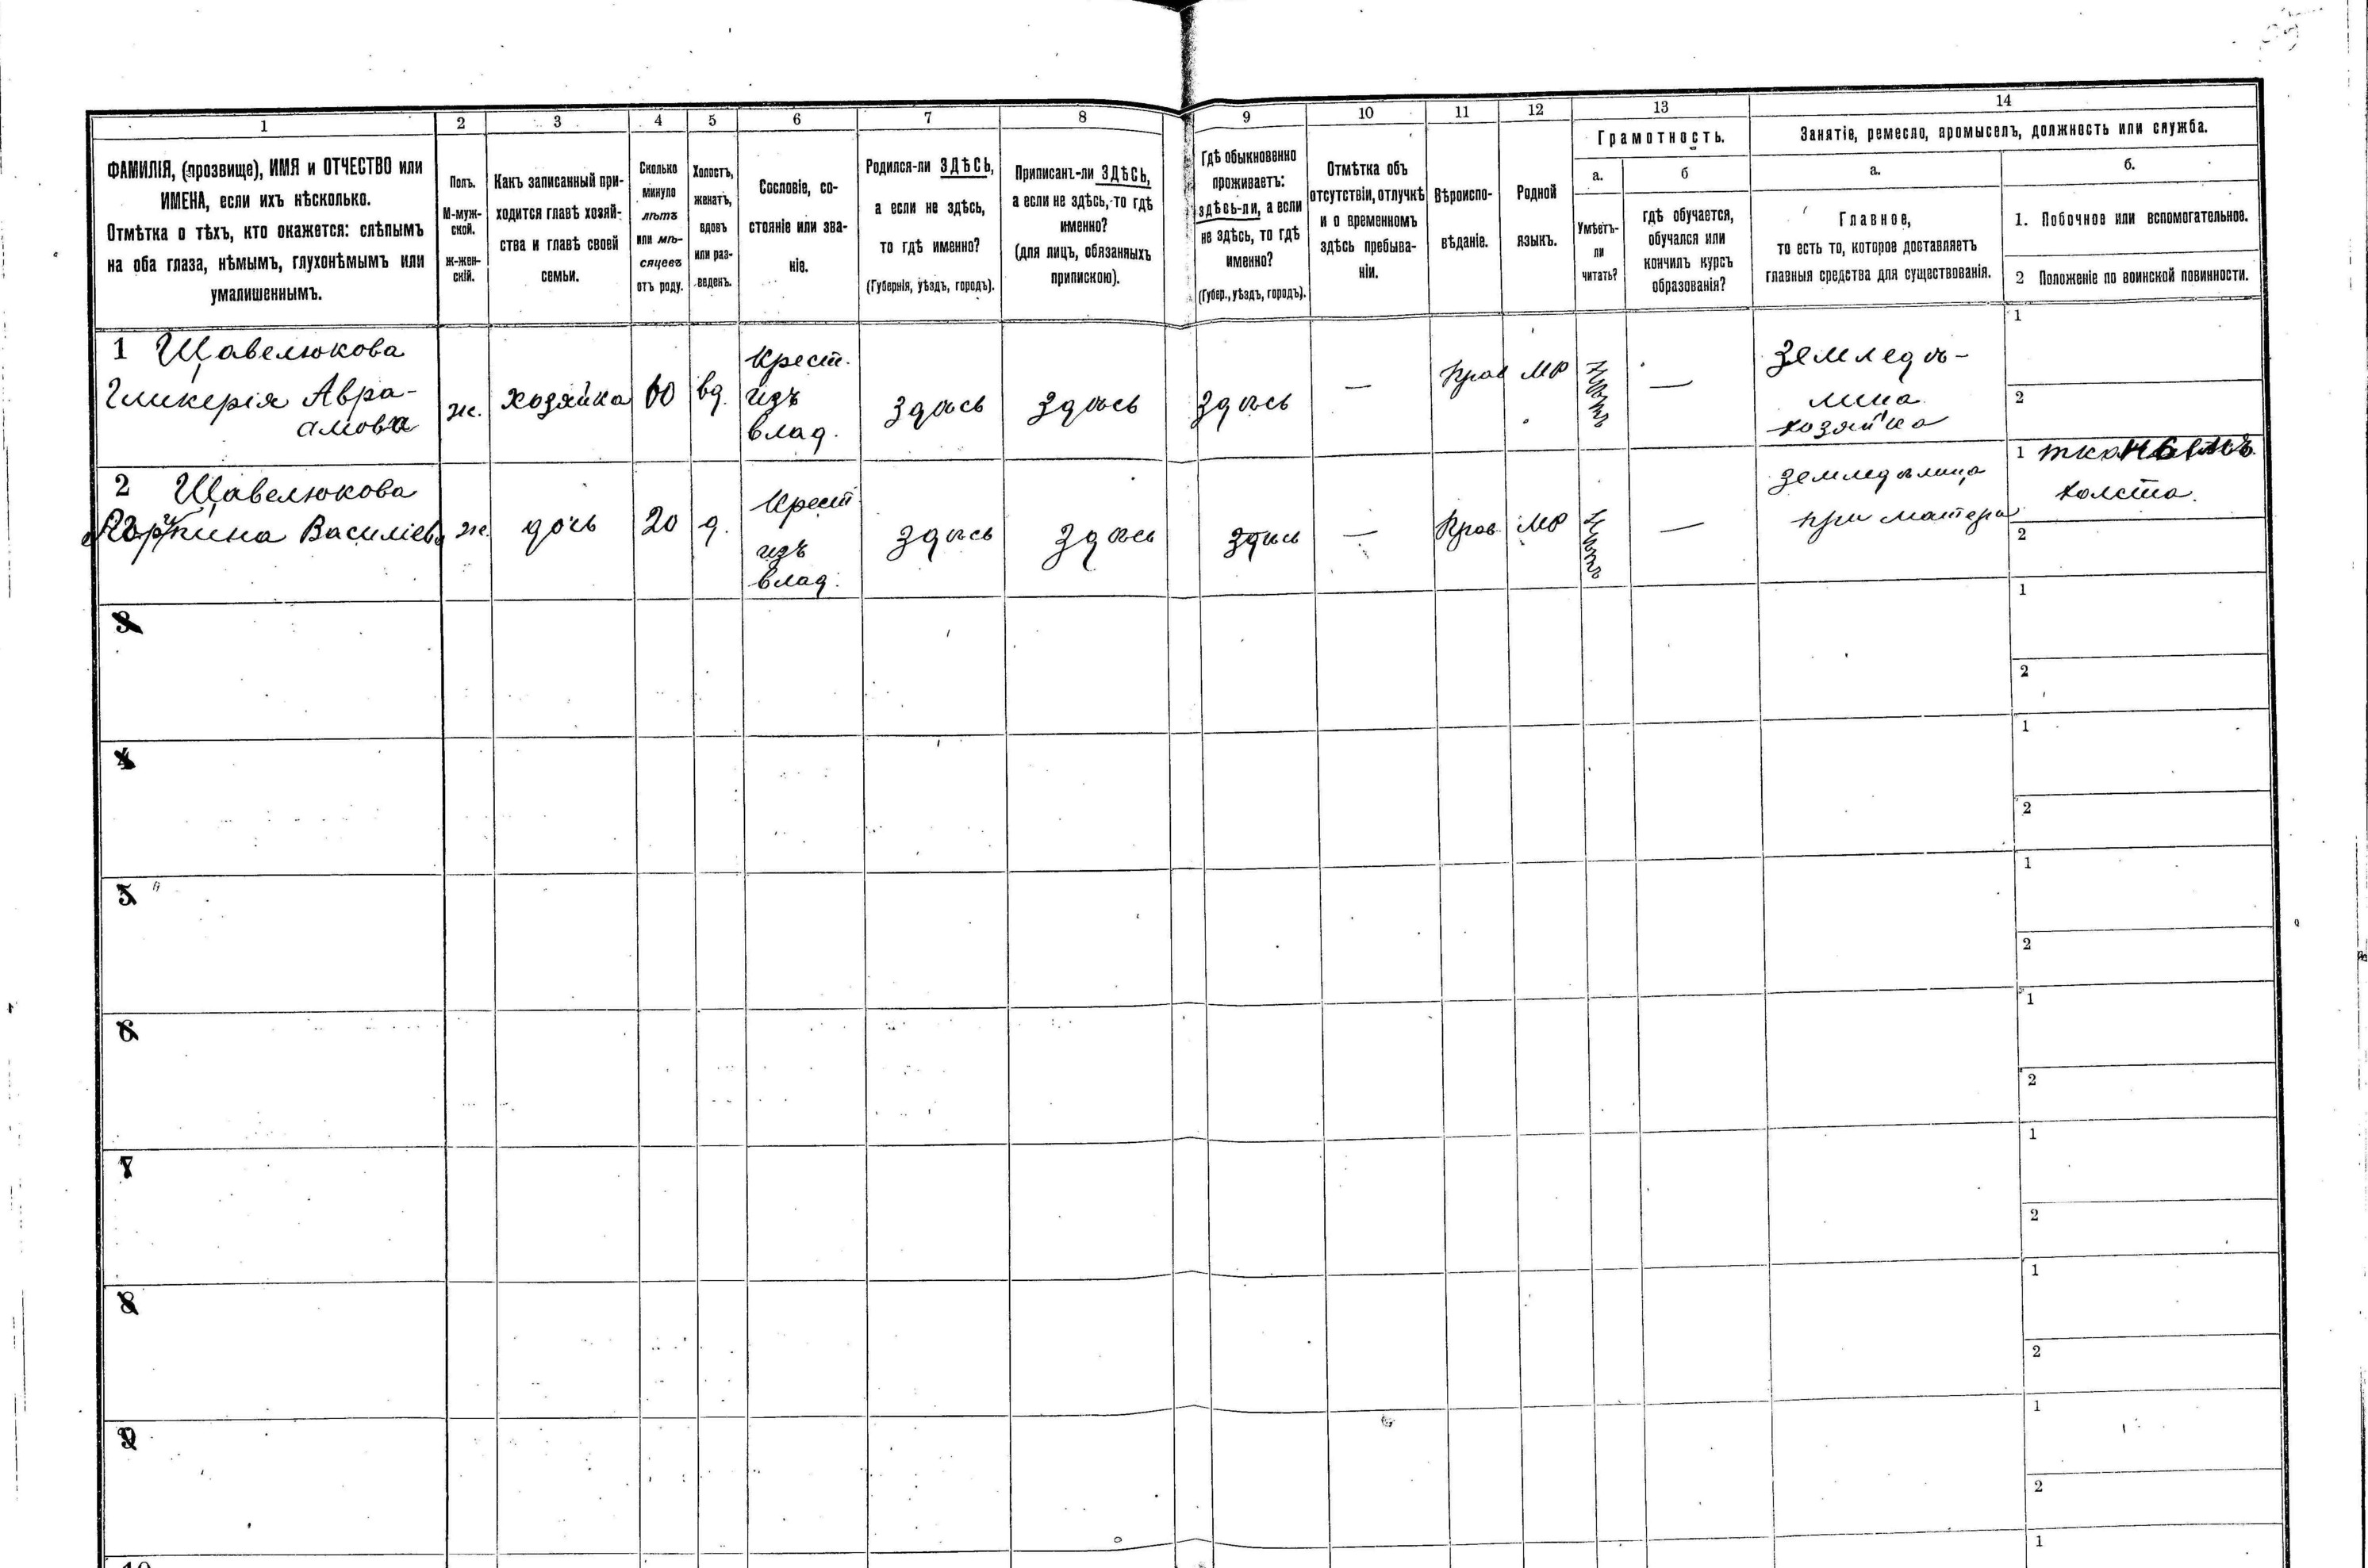 1 2 3 4 5 6 7 8 9 10 11 12 13 14
ФАМИЛІЯ, (прозвище), ИМЯ и ОТЧЕСТВО или
ИМЕНА, если ихъ нѣсколько.
Отмѣтка о тѣхъ, кто окажется: слѣпымъ
на оба глаза, нѣмымъ, глухонѣмымъ или
умалишеннымъ.
Полъ.
М-муж-
ской.
ж-жен-
скій.
Какъ записанный при-
ходится главѣ хозяй-
ства и главѣ своей
семьи.
Сколько
минуло
лѣтъ
или мѣ-
сяцевъ
отъ роду.
Холостъ,
женатъ,
вдовъ
или раз-
веденъ.
Сословіе, со-
стояніе или зва-
ніе.
Родился-ли ЗДѢСЬ,
а если не здѣсь,
то гдѣ именно?
(Губернія, уѣздъ, городъ).
Приписанъ-ли ЗДѢСЬ,
а если не здѣсь, то гдѣ
именно?
(для лицъ, обязанныхъ
припискою).
Гдѣ обыкновенно
проживаетъ:
здѣсь-ли, а если
не здѣсь, то гдѣ
именно?
(Губер., уѣздъ, городъ).
Отмѣтка объ
отсутствіи, отлучкѣ
и о временномъ
здѣсь пребыва-
ніи.
Вѣроиспо-
вѣданіе.
Родной
языкъ.
Грамотность.
а.
Умѣетъ-
ли
читать?
б
гдѣ обучается,
обучался или
кончилъ курсъ
образованія?
Занятіе, ремесло, промыселъ, должность или служба.
а.
Главное,
то есть то, которое доставляетъ
главныя средства для существованія.
б.
1. Побочное или вспомогательное.
2 Положеніе по воинской повинности.
1 Щавелюкова
Гликерія Авра-
амова
ж.
хозяйка
60
вд.
Крест.
изъ
влад.
здѣсь
здѣсь
здѣсь
—
Прав
МР
нѣтъ
—
Земледѣ-
лица
хозяйка
1
2
2 Щавелюкова
Василіева
ж.
дочь
20
д.
Крест
изъ
влад.
здѣсь
здѣсь
здѣсь
—
Прав.
МР
нѣтъ
—
земледѣлица
при матери
1 тканьемъ
холста.
2
3
1
2
4
1
2
5
1
2
6
1
2
7
1
2
8
1
2
9
1
2
1